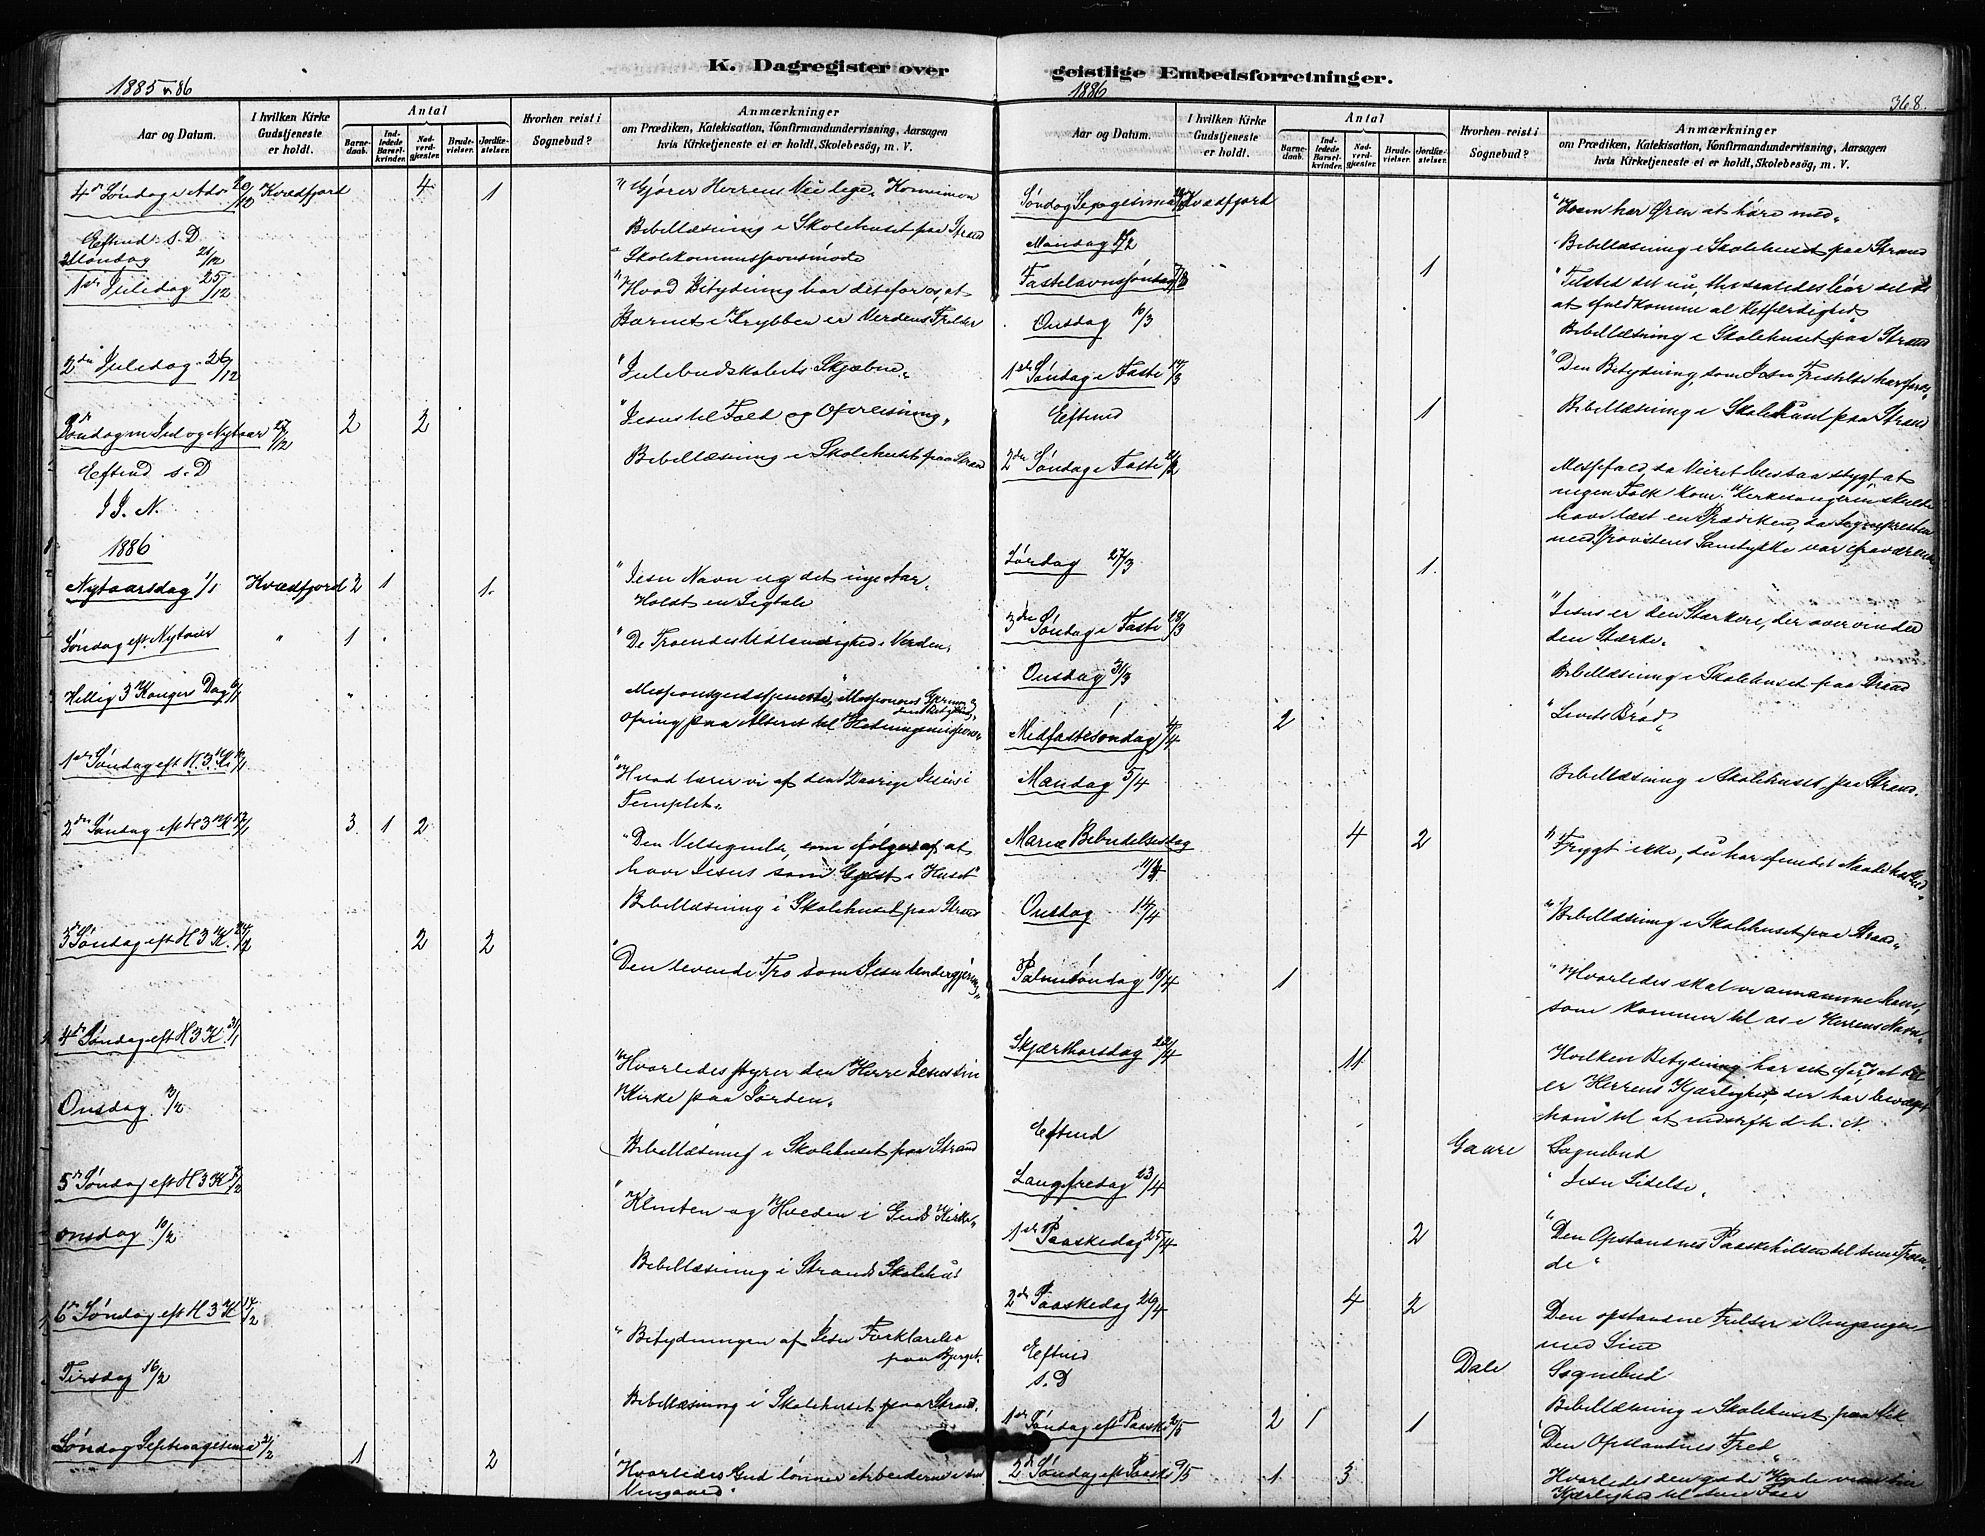 K. Dagregister over geistlige Embedsforretninger.
1885 86
1886
368
Aar og Datum.
I hvilken Kirke Gudstjeneste er holdt.
Antal
Barnedaab.
Indledede Barselkvinder.
Nadverdgjæster.
Brudevielser.
Jordfæstelser.
Hvorhen reist i Sognebud?
Anmærkninger
om Prædiken, Katekisation, Konfirmandundervisning, Aarsagen
hvis Kirketjeneste ei er holdt, Skolebesøg, m. V.
4de Søndag i Adv 20/12 Kvædfjord 4 1 "Gjører Herrens Vei lige"
Eftmd. s. D Bibellæsning i Skolehuset paa Strand
Mandag 21/12 Skolekommissionsmøde
1ste Juledag 25/12 "Hvad Betydning har det for os, at
Barnet i Krybben er Verdens Frelser
2den Juledag 26/12 "Julebudskabets Skjæbne"
Søndag m Jul og Nytaar 27/12 2 2 "Jesus til Fald og Opreisning"
Eftmd s. D Bibellæsning i Skolehuset paa Strand
I J. N.
1886
Nytaarsdag 1/1 Kvædfjord 2 1 1 "Jesu Navn og det nye Aar"
Holdt en Ligtale
Søndag eft. Nytaar " 1 "De Troendes Udlændighed i Verden"
Hellig 3 Kongers Dag 6/1 "
Ofring paa Alteret til Hedningemissionen
1ste Søndag eft H. 3. K. 10/1 "Hvad lærer vi af den 12aarige Jesus i
Templet"
2den Søndag eft H 3 K 17/1 3 1 2 "Den Velsignelse, som følger af at
have Jesus som Gjest i Huset"
Bibellæsning i Skolehuset paa Strand
3de Søndag eft H 3 K. 24/1 2 2 "Den levende Tro som Jesu Undergjerning"
4de Søndag eft H 3 K 31/1 "Hvorledes styrer den Herre Jesus sin
Kirke paa Jorden"
Onsdag 3/2 Bibellæsning i Skolehuset paa Strand
5te Søndag eft H 3 K 7/2 "Klinten og Hveden i Guds Kirke"
Onsdag 10/2 Bibellæsning i Strands Skolehus
6te Søndag eft H 3 K 14/2 "Betydningen af Jesu Forklarelse
paa Bjerget"
Tirsdag 16/2 Bibellæsning i Skolehuset paa Strand.
Søndag Septuagesima 21/2 1 2 "Hvorledes Gud lønner Arbeiderne i sin
Vingaard"
Aar og Datum.
I hvilken Kirke Gudstjeneste er holdt.
Antal
Barnedaab.
Indledede Barselkvinder.
Nadverdgjæster.
Brudevielser.
Jordfæstelser.
Hvorhen reist i Sognebud?
Anmærkninger
om Prædiken, Katekisation, Konfirmandundervisning, Aarsagen
hvis Kirketjeneste ei er holdt, Skolebesøg, m. V.
Søndag Sexagesima 28/2 Kvædfjord "Hvem har Øren at høre med"
Mandag Bibellæsning i Skolehuset paa Strand
Fastelavnssøndag 7/3 1 "Tilsted det nu, thi saaledes bør det os
at fuldkomme al Retfærdighed"
Onsdag 10/3 Bibellæsning i Skolehuset paa Strand
1ste Søndag i Faste 14/3 "Den Betydning, som Jesu Fristelse har for os"
Eftmd 1 Bibellæsning i Skolehuset paa Strand
2den Søndag i Faste Messefald, da Veiret blev saa stygt at
ingen Folk kom. Kirkesangeren skulde
have læst en Prædiken, da Sognepresten
med Provstens Samtykke var fraværende
Lørdag 27/3 1
3die Søndag i Faste 28/3 "Jesus er den Stærkere, der overvinder
den Stærke"
Onsdag 31/3 Bibellæsning i Skolehuset paa Strand
Midfastesøndag 4/4 2 "Livets Brød"
Mandag 5/4 Bibellæsning i Skolehuset paa Strand.
Mariæ Bebudelsesdag 11/4 4 2 "Frygt ikke, du har fundet Naade hos Gud"
Onsdag 14/4 "Bibellæsning i Skolehuset paa Strand"
Palmesøndag 18/4 1 "Hvorledes skal vi annamme ham,
som kommer til os i Herrens Navn"
Skjærthorsdag 22/4 11 Hvilken Betydning har det for os at det
er Herrens Kjærlighed, der har bevæget
ham til at indstifte d. h. N.
Eftmd Gaare Sognebud
Langfredag 23/4 "Jesu Lidelse"
1ste Paaskedag 25/4 2 "Den Opstandnes Paaskehilsen til sine Troende"
2den Paaskedag 26/4 4 2 Den opstandne Frelser i Omgangen
med Sine
Eftmd Dale Sognebud
s. D Bibellæsning i Skolehuset paa
1ste Søndag eft Paaske 2/5 2 1 1 "Den Opstandnes Fred"
2den Søndag eft Paaske 9/5 1 3 Hvorledes den gode Hyrde viser sin
Kjærlighed til sine Faar